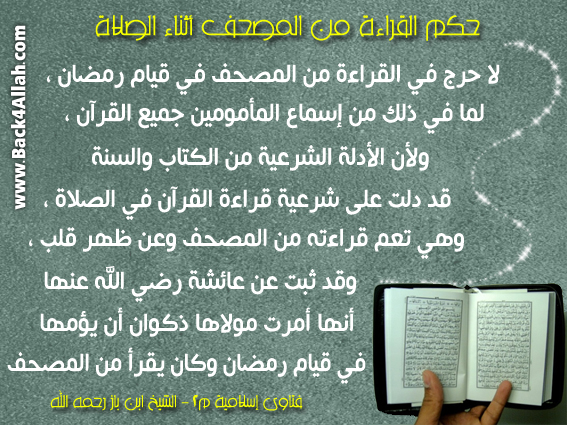 حكم القراءة من المصحف أثناء الصلاة
لا حرج في القراءة من المصحف في قيام رمضان ،
لما في ذلك من إسماع المأمومين جميع القرآن ،
ولأن الأدلة الشرعية من الكتاب والسنة
قد دلت على شرعية قراءة القرآن في الصلاة ،
وهي تعم قراءته من المصحف وعن ظهر قلب ،
وقد ثبت عن عائشة رضي الله عنها
أنها أمرت مولاها ذكوان أن يؤمها
في قيام رمضان وكان يقرأ من المصحف
فتاوى إسلامية م٢ - الشيخ ابن باز رحمه الله
www.Back4Allah.com